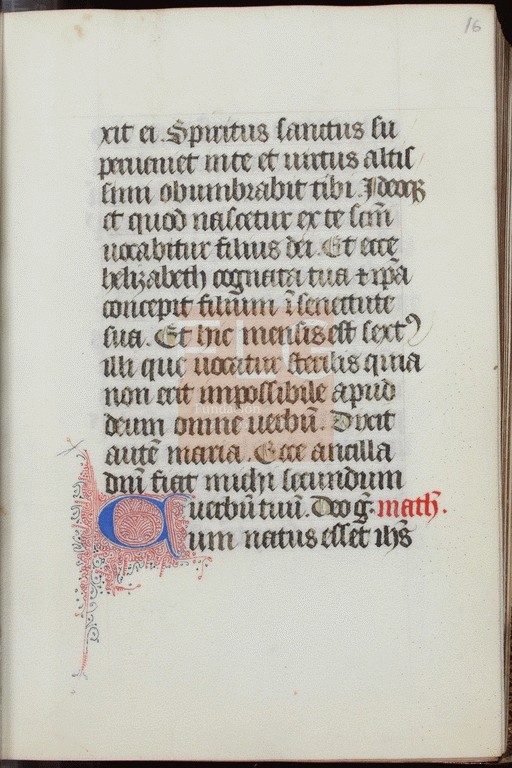 16
xit ei. Spiritus sanctus su
perveniet in te et virtus altis
simi obumbrabit tibi. Ideoqȝ
et quod nascetur ex te scm̄
vocabitur filius dei. Et ecce
helizabeth cognata tua ⁊ ip̄a
concepit filium ī senectute
sua. Et hic mensis est sextꝰ
illi que vocatur sterilis quia
non erit impossibile apud
deum omne verbū. Dixit
autē maria. Ecce ancilla
dn̄i fiat michi secundum
verbū tuū. Deo g̅. math̅.
Cum natus esset ihs̄
FLG
Fundación